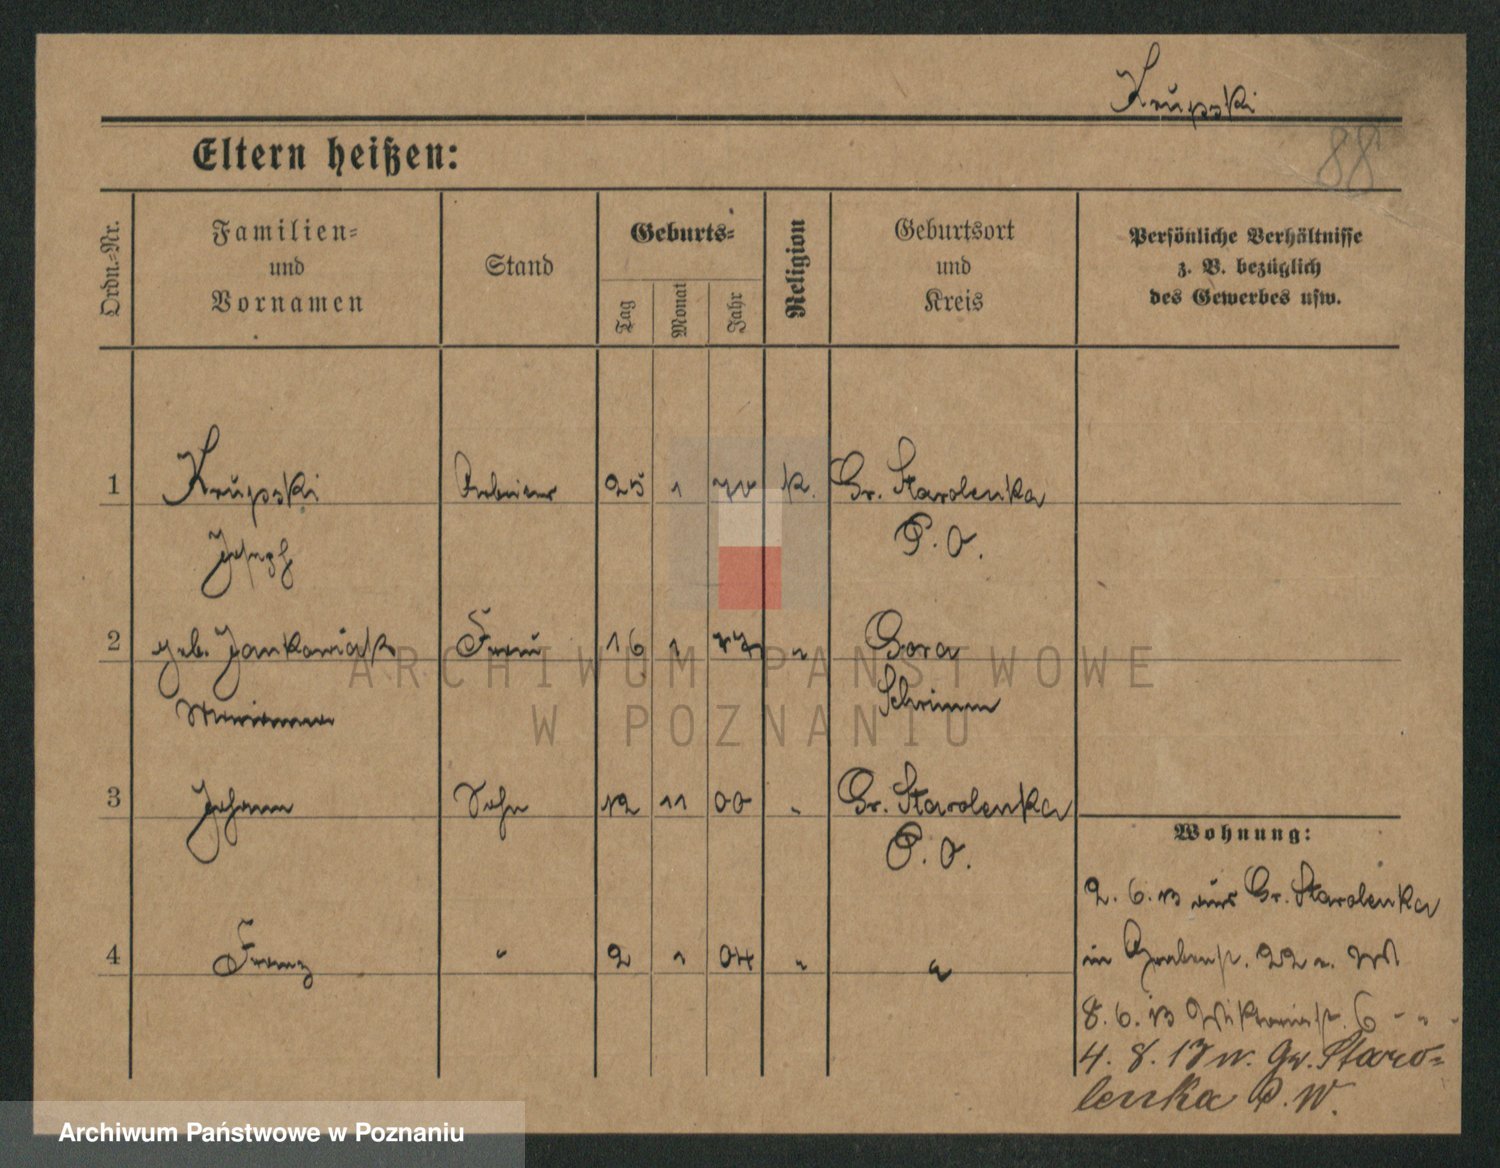 Krupski
88
Eltern heißen:
Ordn.-Nr.
Familien-
und
Vornamen
Stand
Geburts-
Tag
Monat
Jahr
Religion
Geburtsort
und
Kreis
Persönliche Verhältnisse
z. B. bezüglich
des Gewerbes usw.
1 Krupski Arbeiter 25 1 k. Gr. Starolenka
Joseph P. O.
2 geb. Jankowiak Frau 16 1 " Gora
Marianna Schrimm
3 Johann Sohn 12 11 00 " Gr. Starolenka
P. O.
4 Franz " 2 1 04 " "
Wohnung:
2. 6. 13 aus Gr. Starolenka
in Grabenst. 22
8. 6. 13 Wiktoriast. 6 - " -
4. 8. 13 n. Gr. Staro-
lenka P. W.
ARCHIWUM PAŃSTWOWE
W POZNANIU
Archiwum Państwowe w Poznaniu